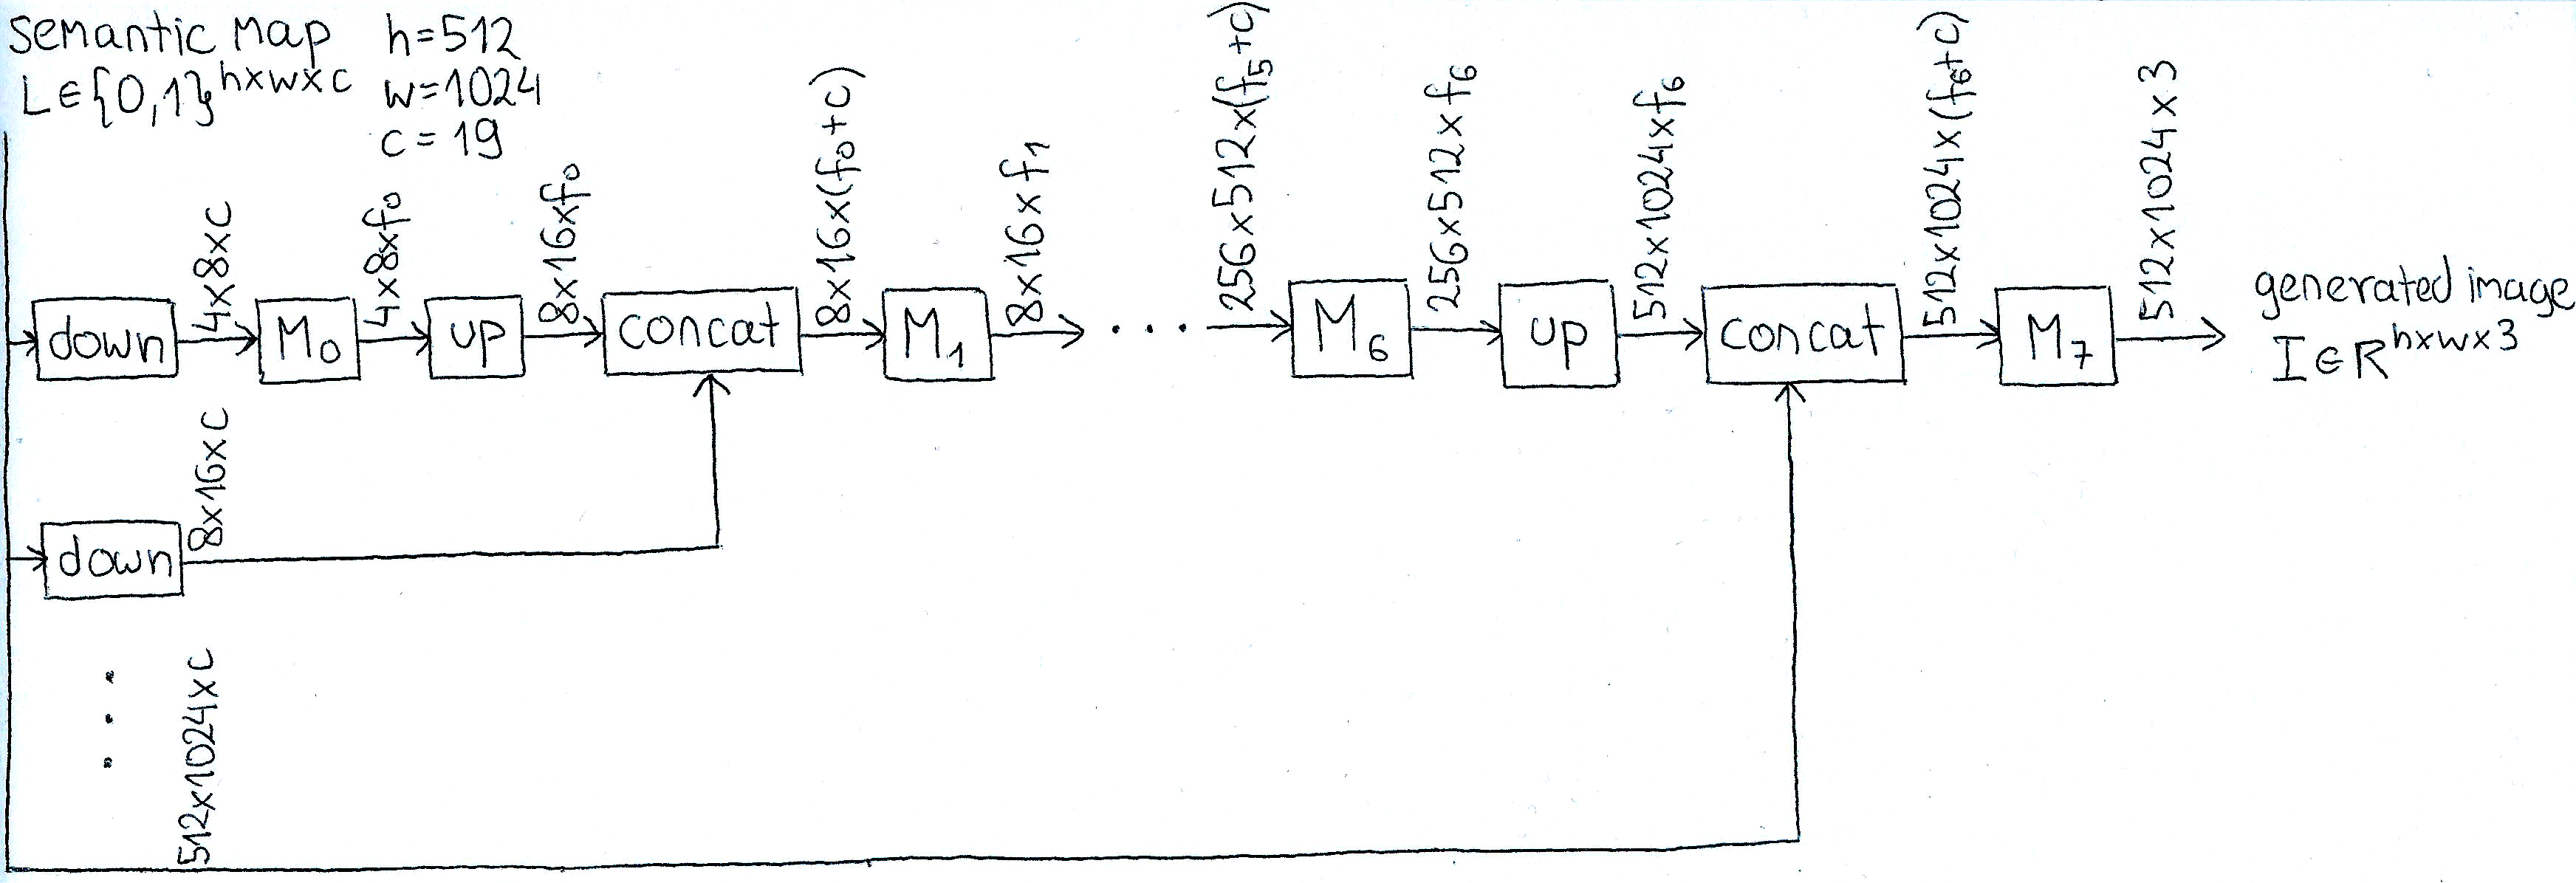 semantic map
h=512
L∈{0,1}^hxwxc
w=1024
c=19
down
4x8xc
M₀
4x8xf₀
up
8x16xf₀
concat
8x16x(f₀+c)
M₁
8x16xf₁
...
256x512x(f₅+c)
M₆
256x512xf₆
up
512x1024xf₆
concat
512x1024x(f₆+c)
M₇
512x1024x3
generated image
I∈R^hxwx3
down
8x16xc
512x1024xc